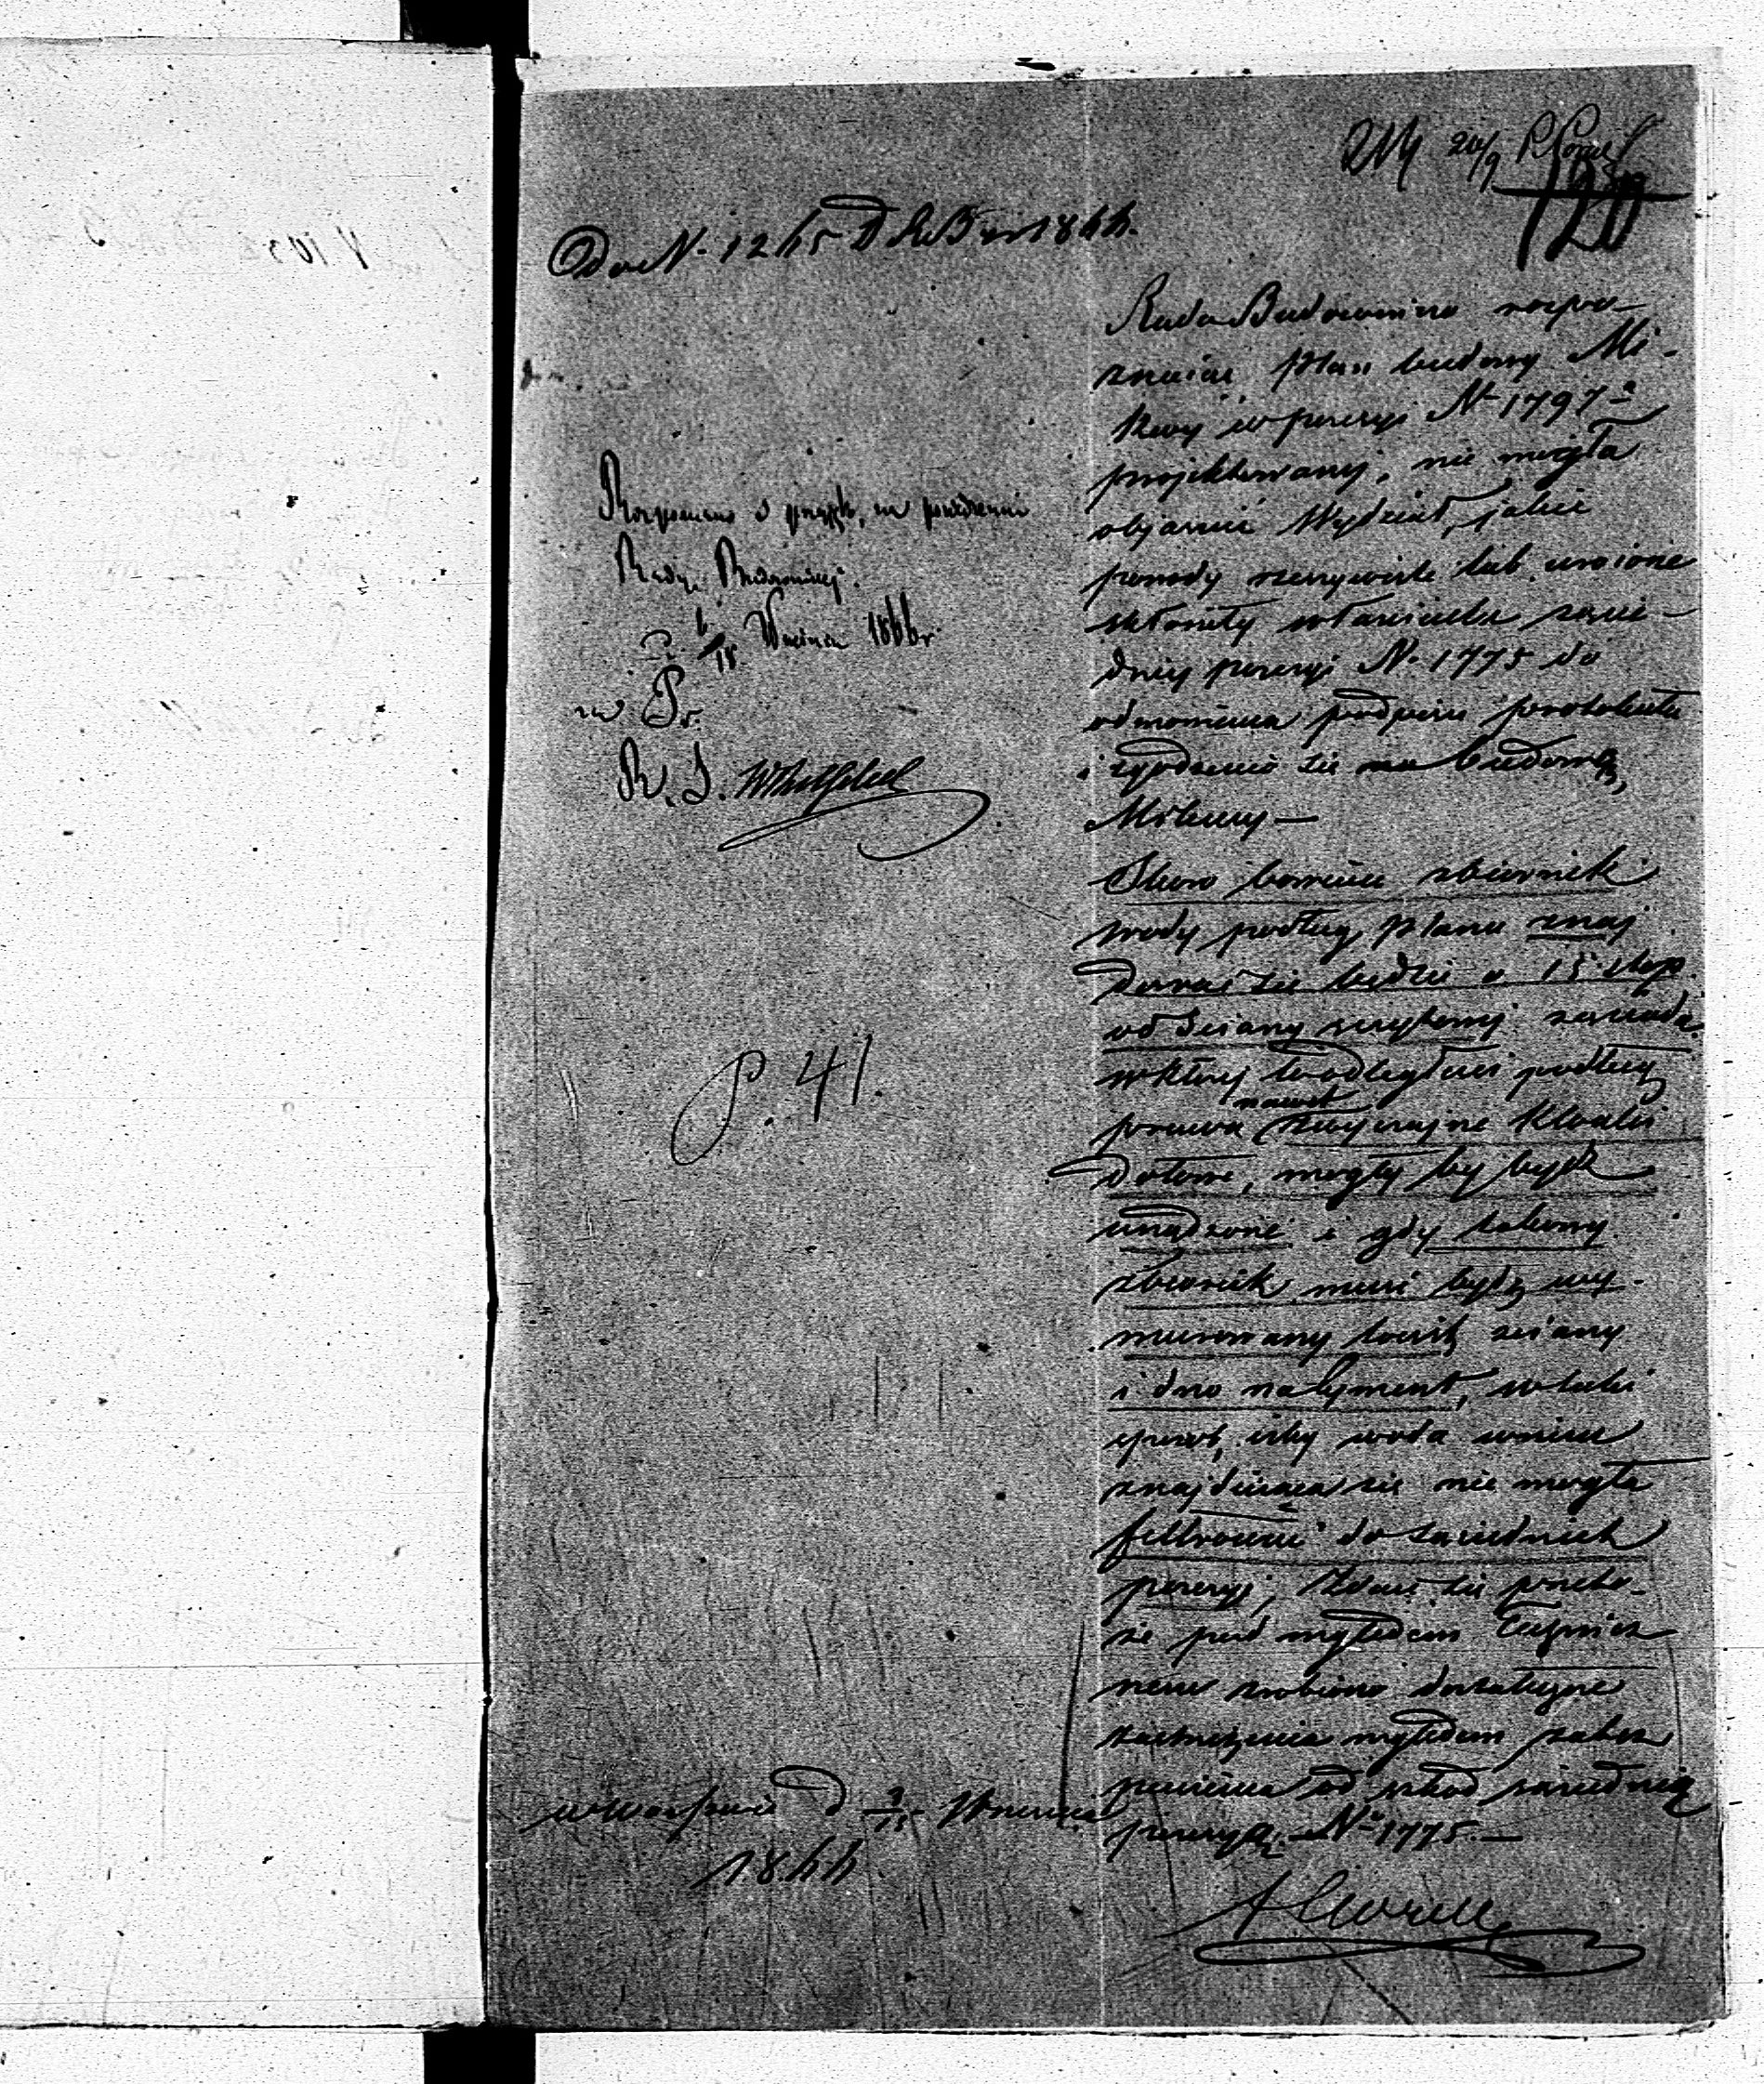 214 20/9
120
Do N. 1245 1866.
Rada Budownicza rozpo-
znaiąc plan budowy Mi-
kwy w posesyi N. 1797 a
projektowanej, nie mogła
objasnić Wydział, jakie
powody rzeczywiste lub urojone
skłoniły właściciela sąsie-
dniej posesyi N. 1775 do
odmówienia podpisu protokułu
i zgodzenia się na budowę
Mikwy —
Skoro bowiem zbiornik
wody podług planu znaj
dować się będzie o 15 stóp
od ściany szczytowej sąsiada
w której to odległości podług
nawet
prawa zwyczajne kloaki
dołowe, mogły by bydź
urządzone i gdy takowy
zbiornik musi bydź wy-
murowany tocież ściany
i dno na cyment, w taki
sposób, iżby woda w nim
znajdująca się nie mogła
filtrować do sąsiednich
posesyj, zdaje się przeto
że pod względem Technicz
nem zrobiono dostateczne
zastrzeżenia względem zabez
pieczenia od szkod sąsiednią
posesyą N. 1775. —
Rozpoznano i przyjęto, na posiedzeniu
Rady Budowniczej.
D. 6/18 Września 1866 r.
za Pr.
R. S.
P. 41.
w Warszawie d 3/15 Września
1866